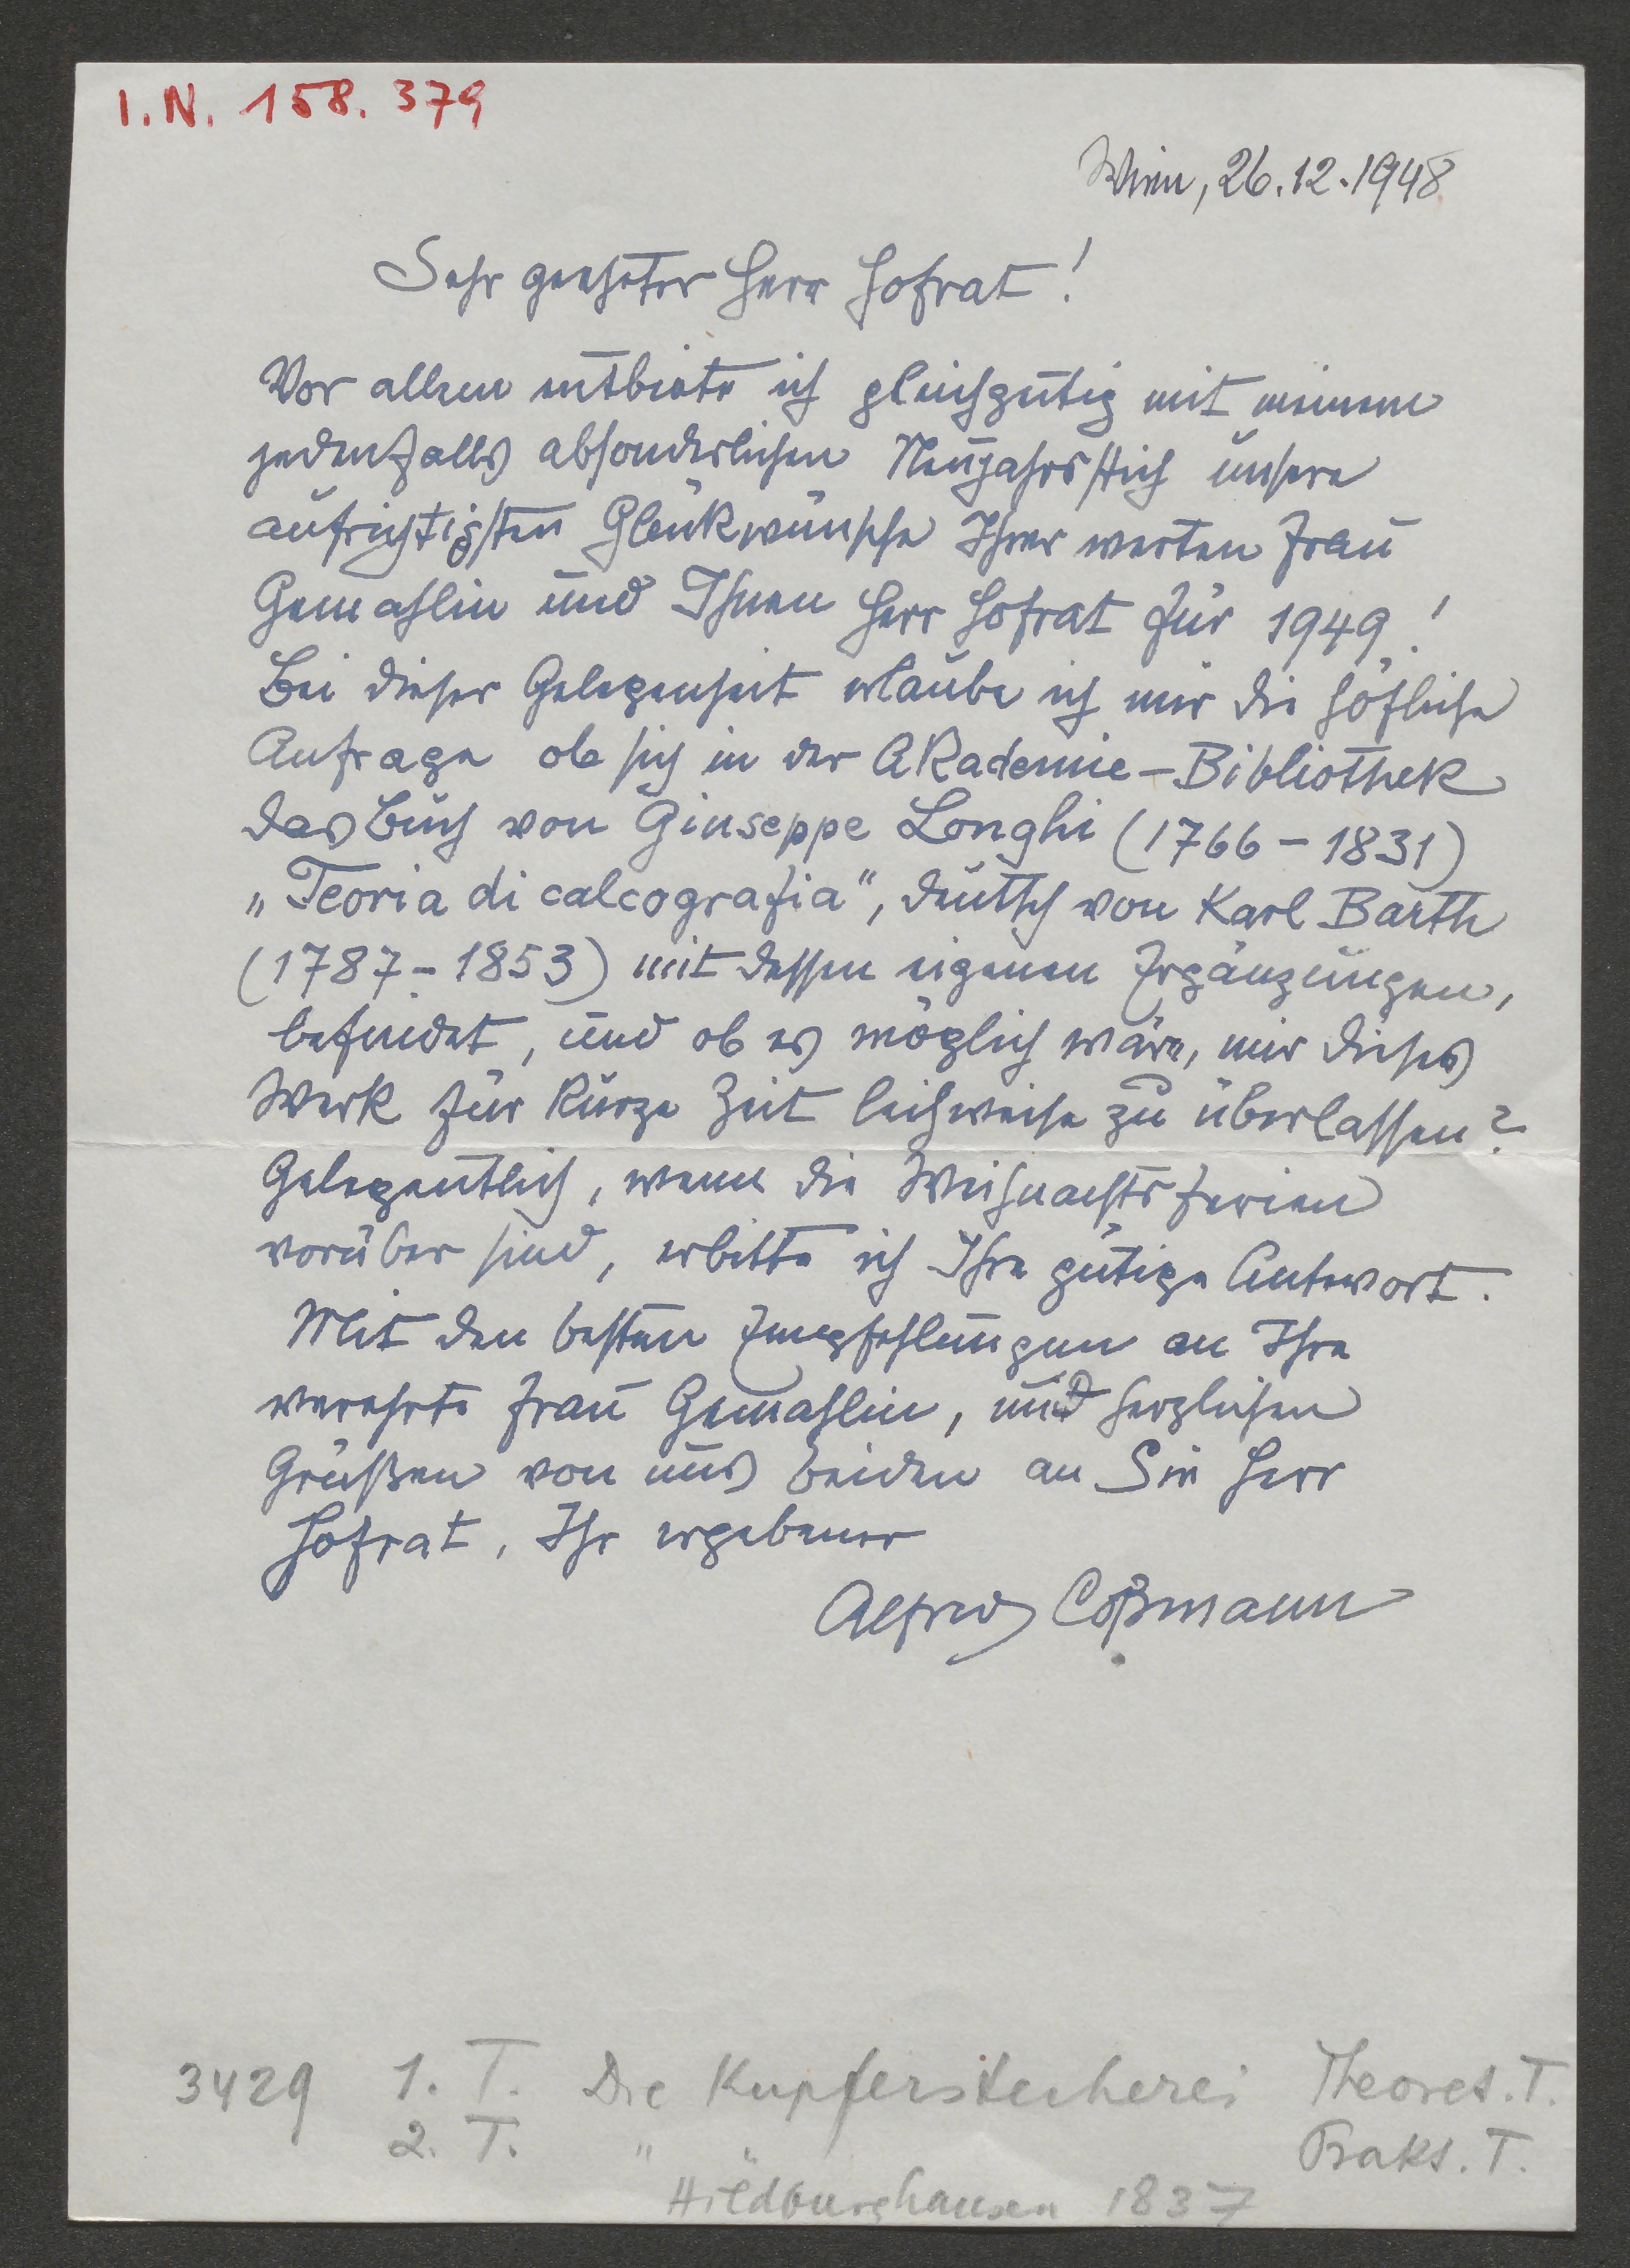 I.N. 158.379
Wien, 26.12.1948
Sehr geehrter Herr Hofrat!
Vor allem entbiete ich gleichzeitig mit meinem
jedenfalls absonderlichen Neujahrsstich unsere
aufrichtigsten Glückwünsche Ihrer werten Frau
Gemahlin und Ihnen Herr Hofrat für 1949!
Bei dieser Gelegenheit erlaube ich mir die höfliche
Anfrage ob sich in der Akademie-Bibliothek
das Buch von Giuseppe Longhi (1766-1831)
„Teoria di calcografia“, deutsch von Karl Barth
(1787-1853) mit dessen eigenen Ergänzungen,
befindet, und ob es möglich wäre, mir dieses
Werk für kurze Zeit leihweise zu überlassen?
Gelegentlich, wenn die Weihnachtsferien
vorüber sind, erbitte ich Ihre gütige Antwort.
Mit den besten Empfehlungen an Ihre
verehrte Frau Gemahlin, und herzlichen
Grüßen von uns beiden an Sie Herr
Hofrat, Ihr ergebener
Alfred Coßmann
3429 1. T. Die Kupferstecherei Theoret. T.
2. T. " " Prakt. T.
Hildburghausen 1837